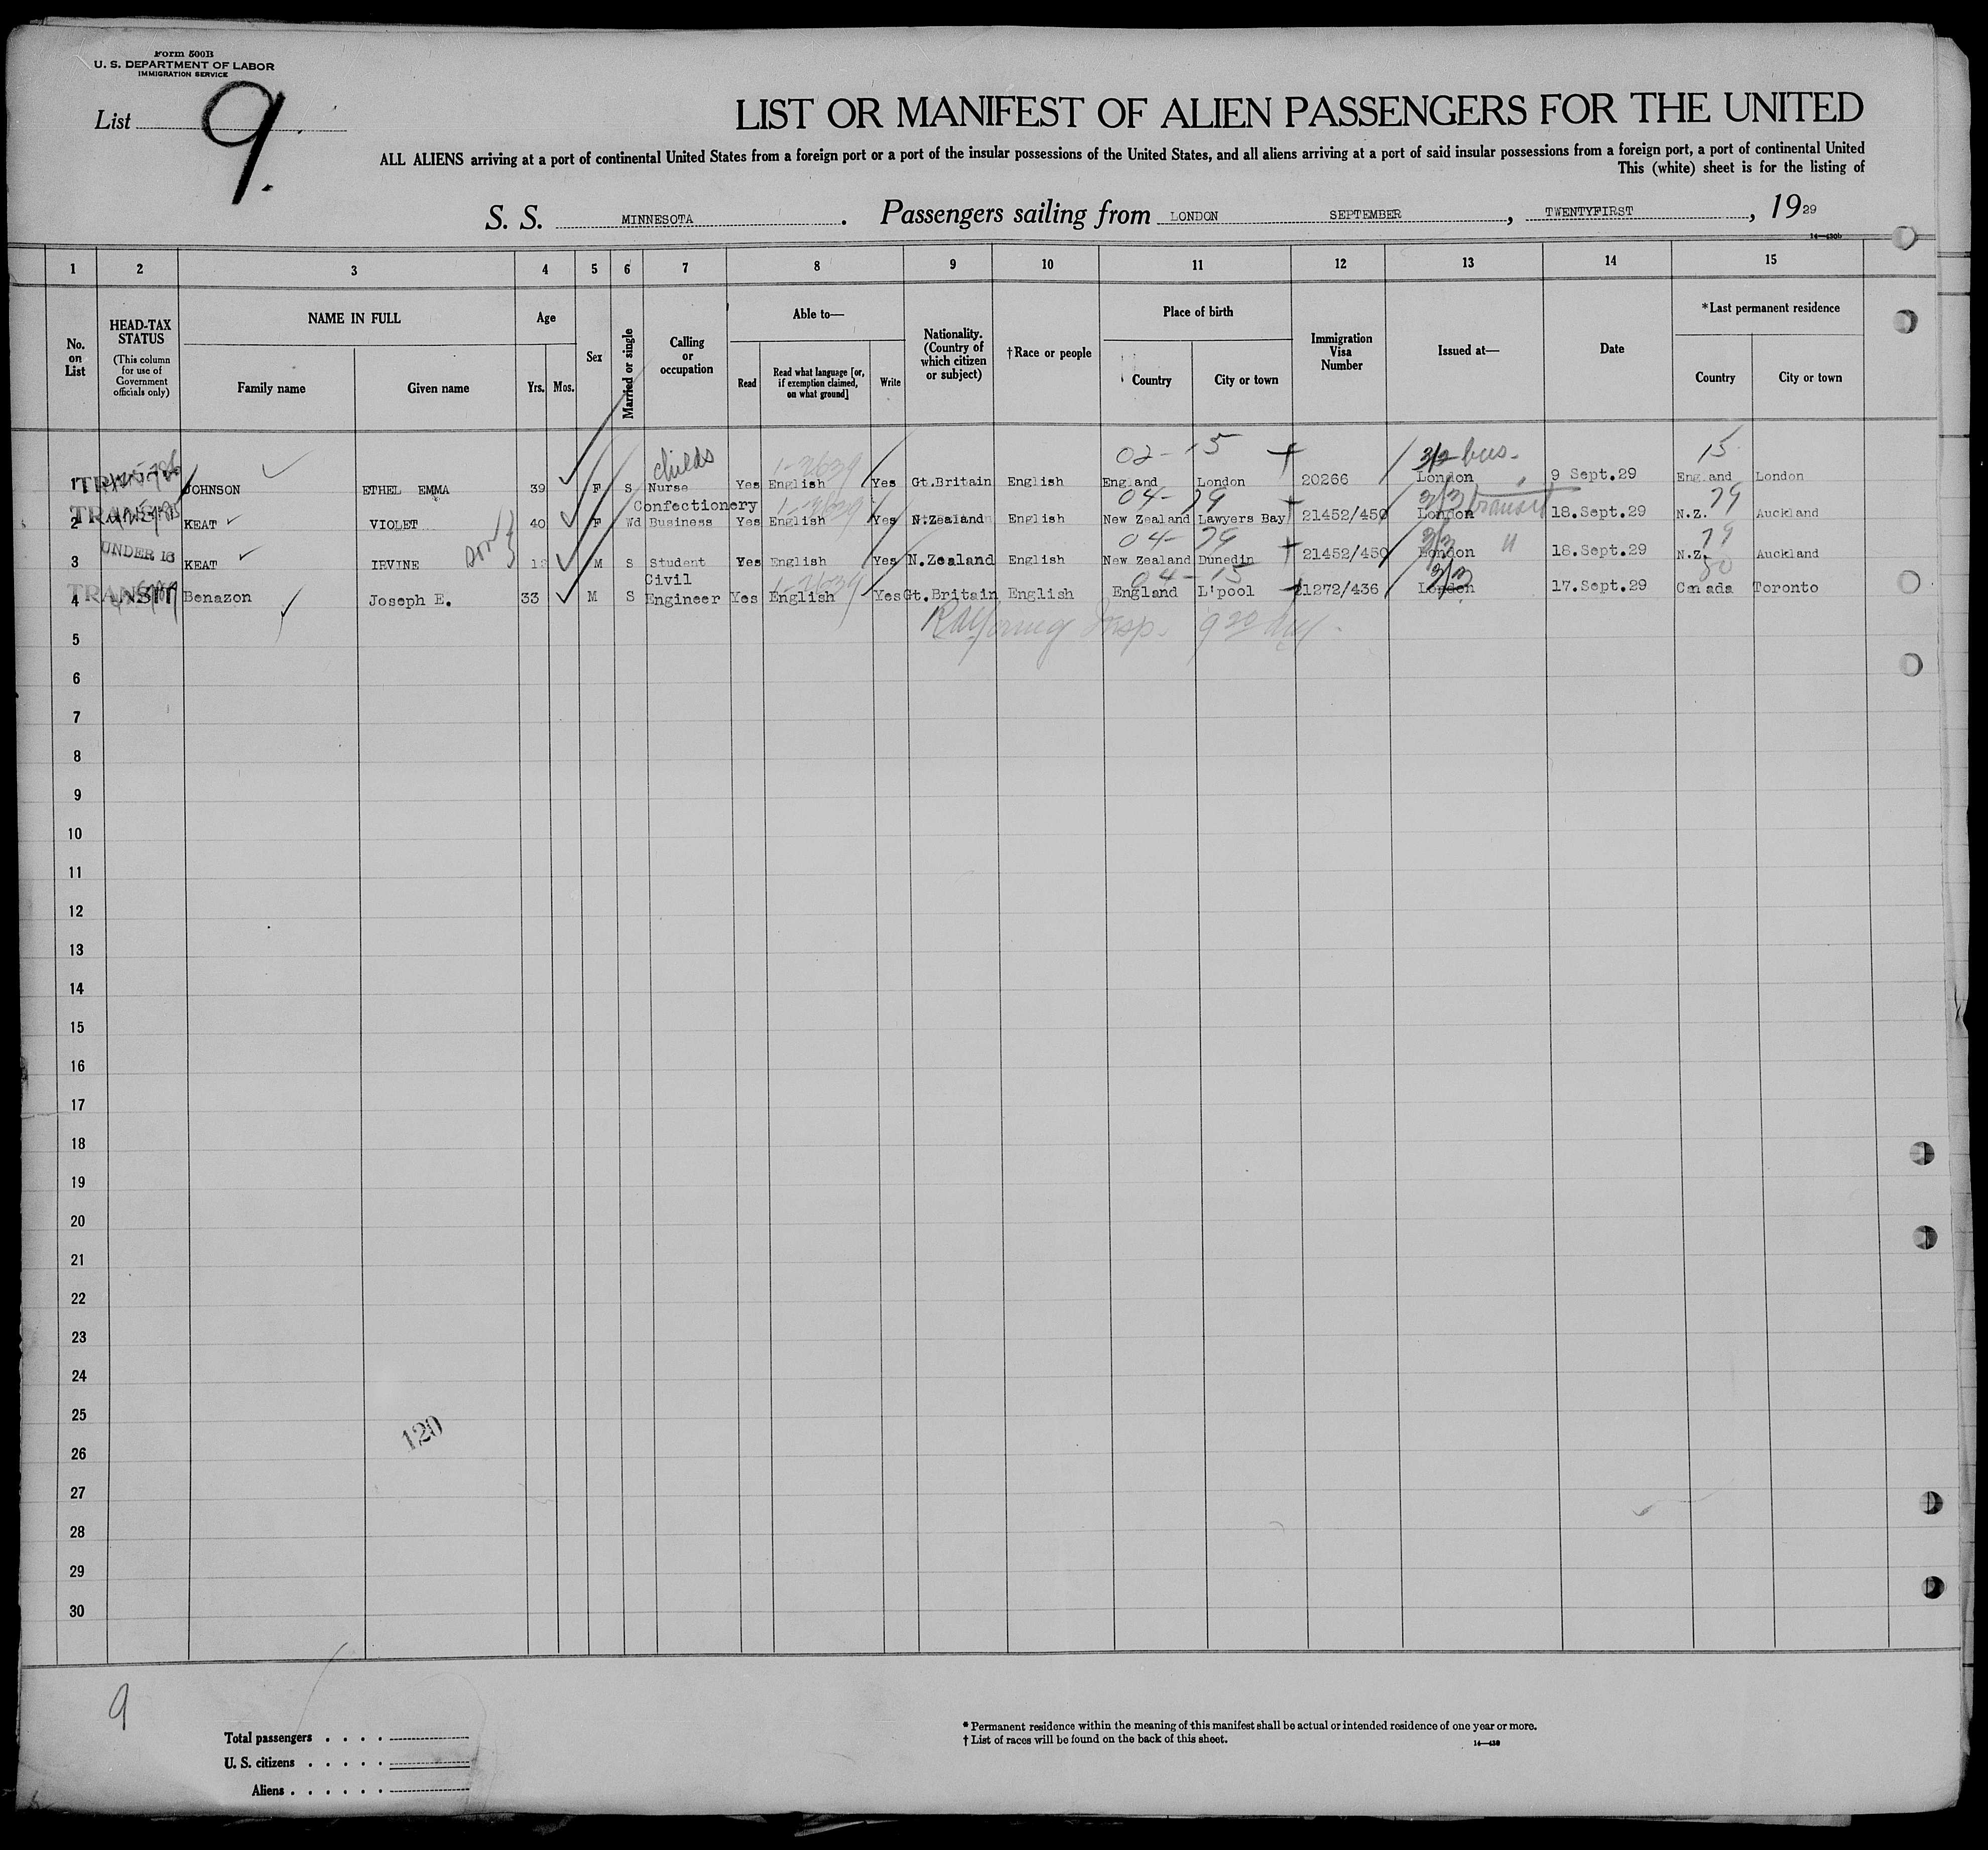 Form 500B
U. S. DEPARTMENT OF LABOR
IMMIGRATION SERVICE
List 9.
LIST OR MANIFEST OF ALIEN PASSENGERS FOR THE UNITED
ALL ALIENS arriving at a port of continental United States from a foreign port or a port of the insular possessions of the United States, and all aliens arriving at a port of said insular possessions from a foreign port, a port of continental United
This (white) sheet is for the listing of
S. S. MINNESOTA. Passengers sailing from LONDON SEPTEMBER, TWENTYFIRST, 1929
14—430b
1 2 3 4 5 6 7 8 9 10 11 12 13 14 15
No. on List
HEAD-TAX STATUS
(This column for use of Government officials only)
NAME IN FULL
Family name Given name
Age
Yrs. Mos.
Sex
Married or single
Calling or occupation
Able to—
Read
Read what language [or, if exemption claimed, on what ground]
Write
Nationality. (Country of which citizen or subject)
†Race or people
Place of birth
Country City or town
Immigration Visa Number
Issued at—
Date
*Last permanent residence
Country City or town
childs 1-2639 02-15 3/2 bus- 15
1 JOHNSON ETHEL EMMA 39 F S Nurse Yes English Yes Gt.Britain English England London 20266 London 9 Sept.29 England London
Confectionery 04-79 3/3 transit 79
TRANSIT 2 KEAT VIOLET 40 F Wd Business Yes English Yes N.Zealand English New Zealand Lawyers Bay 21452/450 London 18.Sept.29 N.Z. Auckland
04-79 3/3 " 79
UNDER 16 3 KEAT IRVINE son M S Student Yes English Yes N.Zealand English New Zealand Dunedin 21452/450 London 18.Sept.29 N.Z. Auckland
Civil 1-2639 04-15 3/3 80
TRANSIT 4 Benazon Joseph E. 33 M S Engineer Yes English Yes Gt.Britain English England L'pool 21272/436 London 17.Sept.29 Canada Toronto
5 Insp.
6
7
8
9
10
11
12
13
14
15
16
17
18
19
20
21
22
23
24
25
120
26
27
28
29
30
9
Total passengers . . . .
U. S. citizens . . . . .
Aliens . . . . . .
* Permanent residence within the meaning of this manifest shall be actual or intended residence of one year or more.
† List of races will be found on the back of this sheet.
14—430